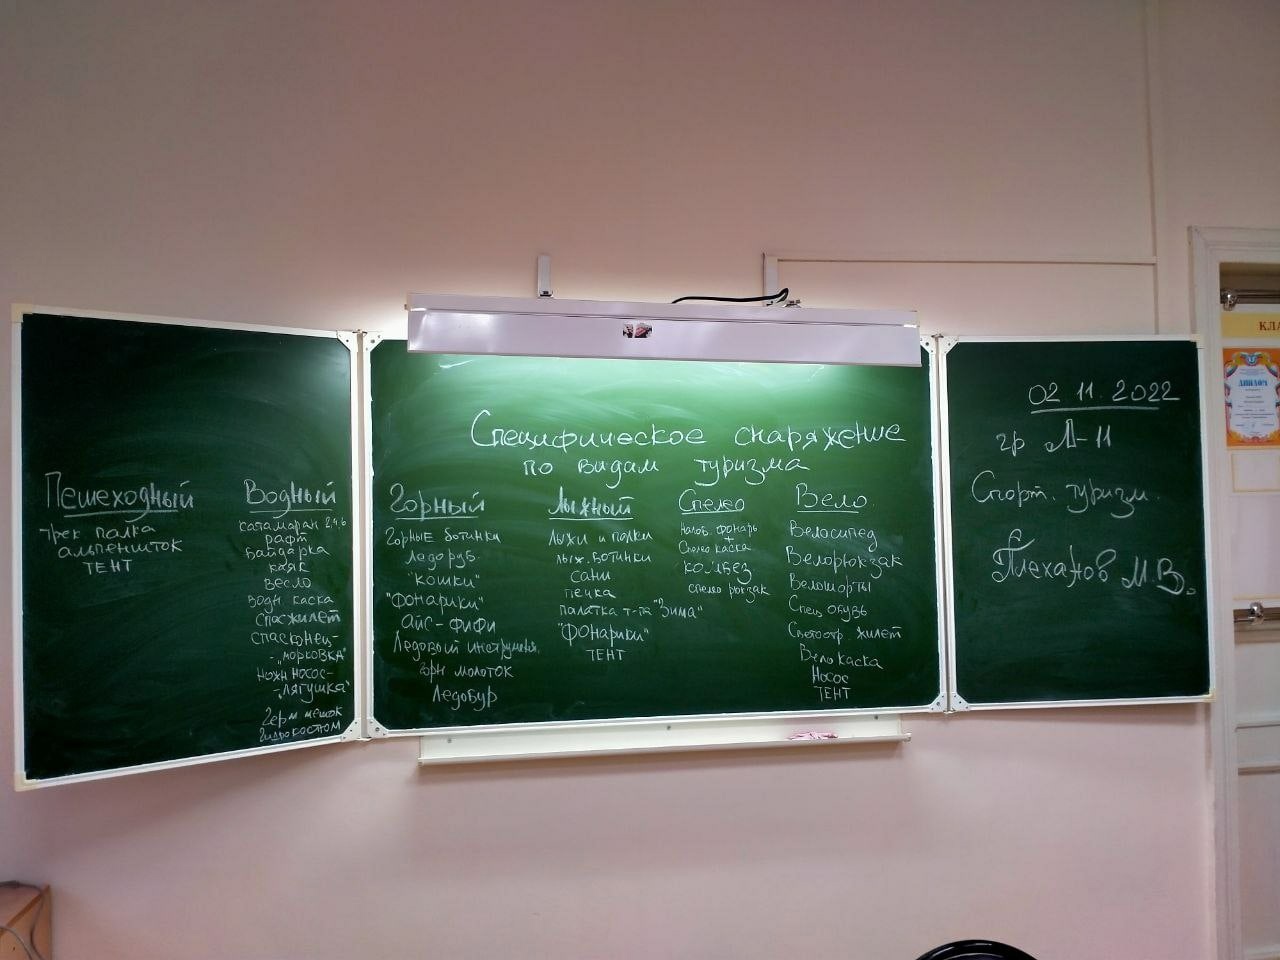 Специфическое снаряжение
по видам туризма
Пешеходный
трек палка
альпеншток
тент
Водный
катамаран 2,4,6
рафт
байдарка
каяк
весло
водн каска
спасжилет
спасконец-
-"морковка"
Ножн насос-
-"лягушка"
Герм мешок
Гидрокостюм
Горный
Горные ботинки
Ледоруб
"кошки"
"Фонарики"
Айс-фифи
Ледовый инструмен.
Горн молоток
Ледобур
Лыжный
лыжи и палки
лыж. ботинки
сани
печка
палатка т-па "Зима"
"Фонарики"
тент
Спелео
Налоб. фонарь
+
Спелео каска
комбез
спелео рюкзак
Вело
Велосипед
Велорюкзак
Велошорты
Спец обувь
Светоотр жилет
Вело каска
Насос
тент
02.11.2022
гр Л-11
Спорт. туризм.
Плеханов М.В.
КЛА
ДИПЛОМ